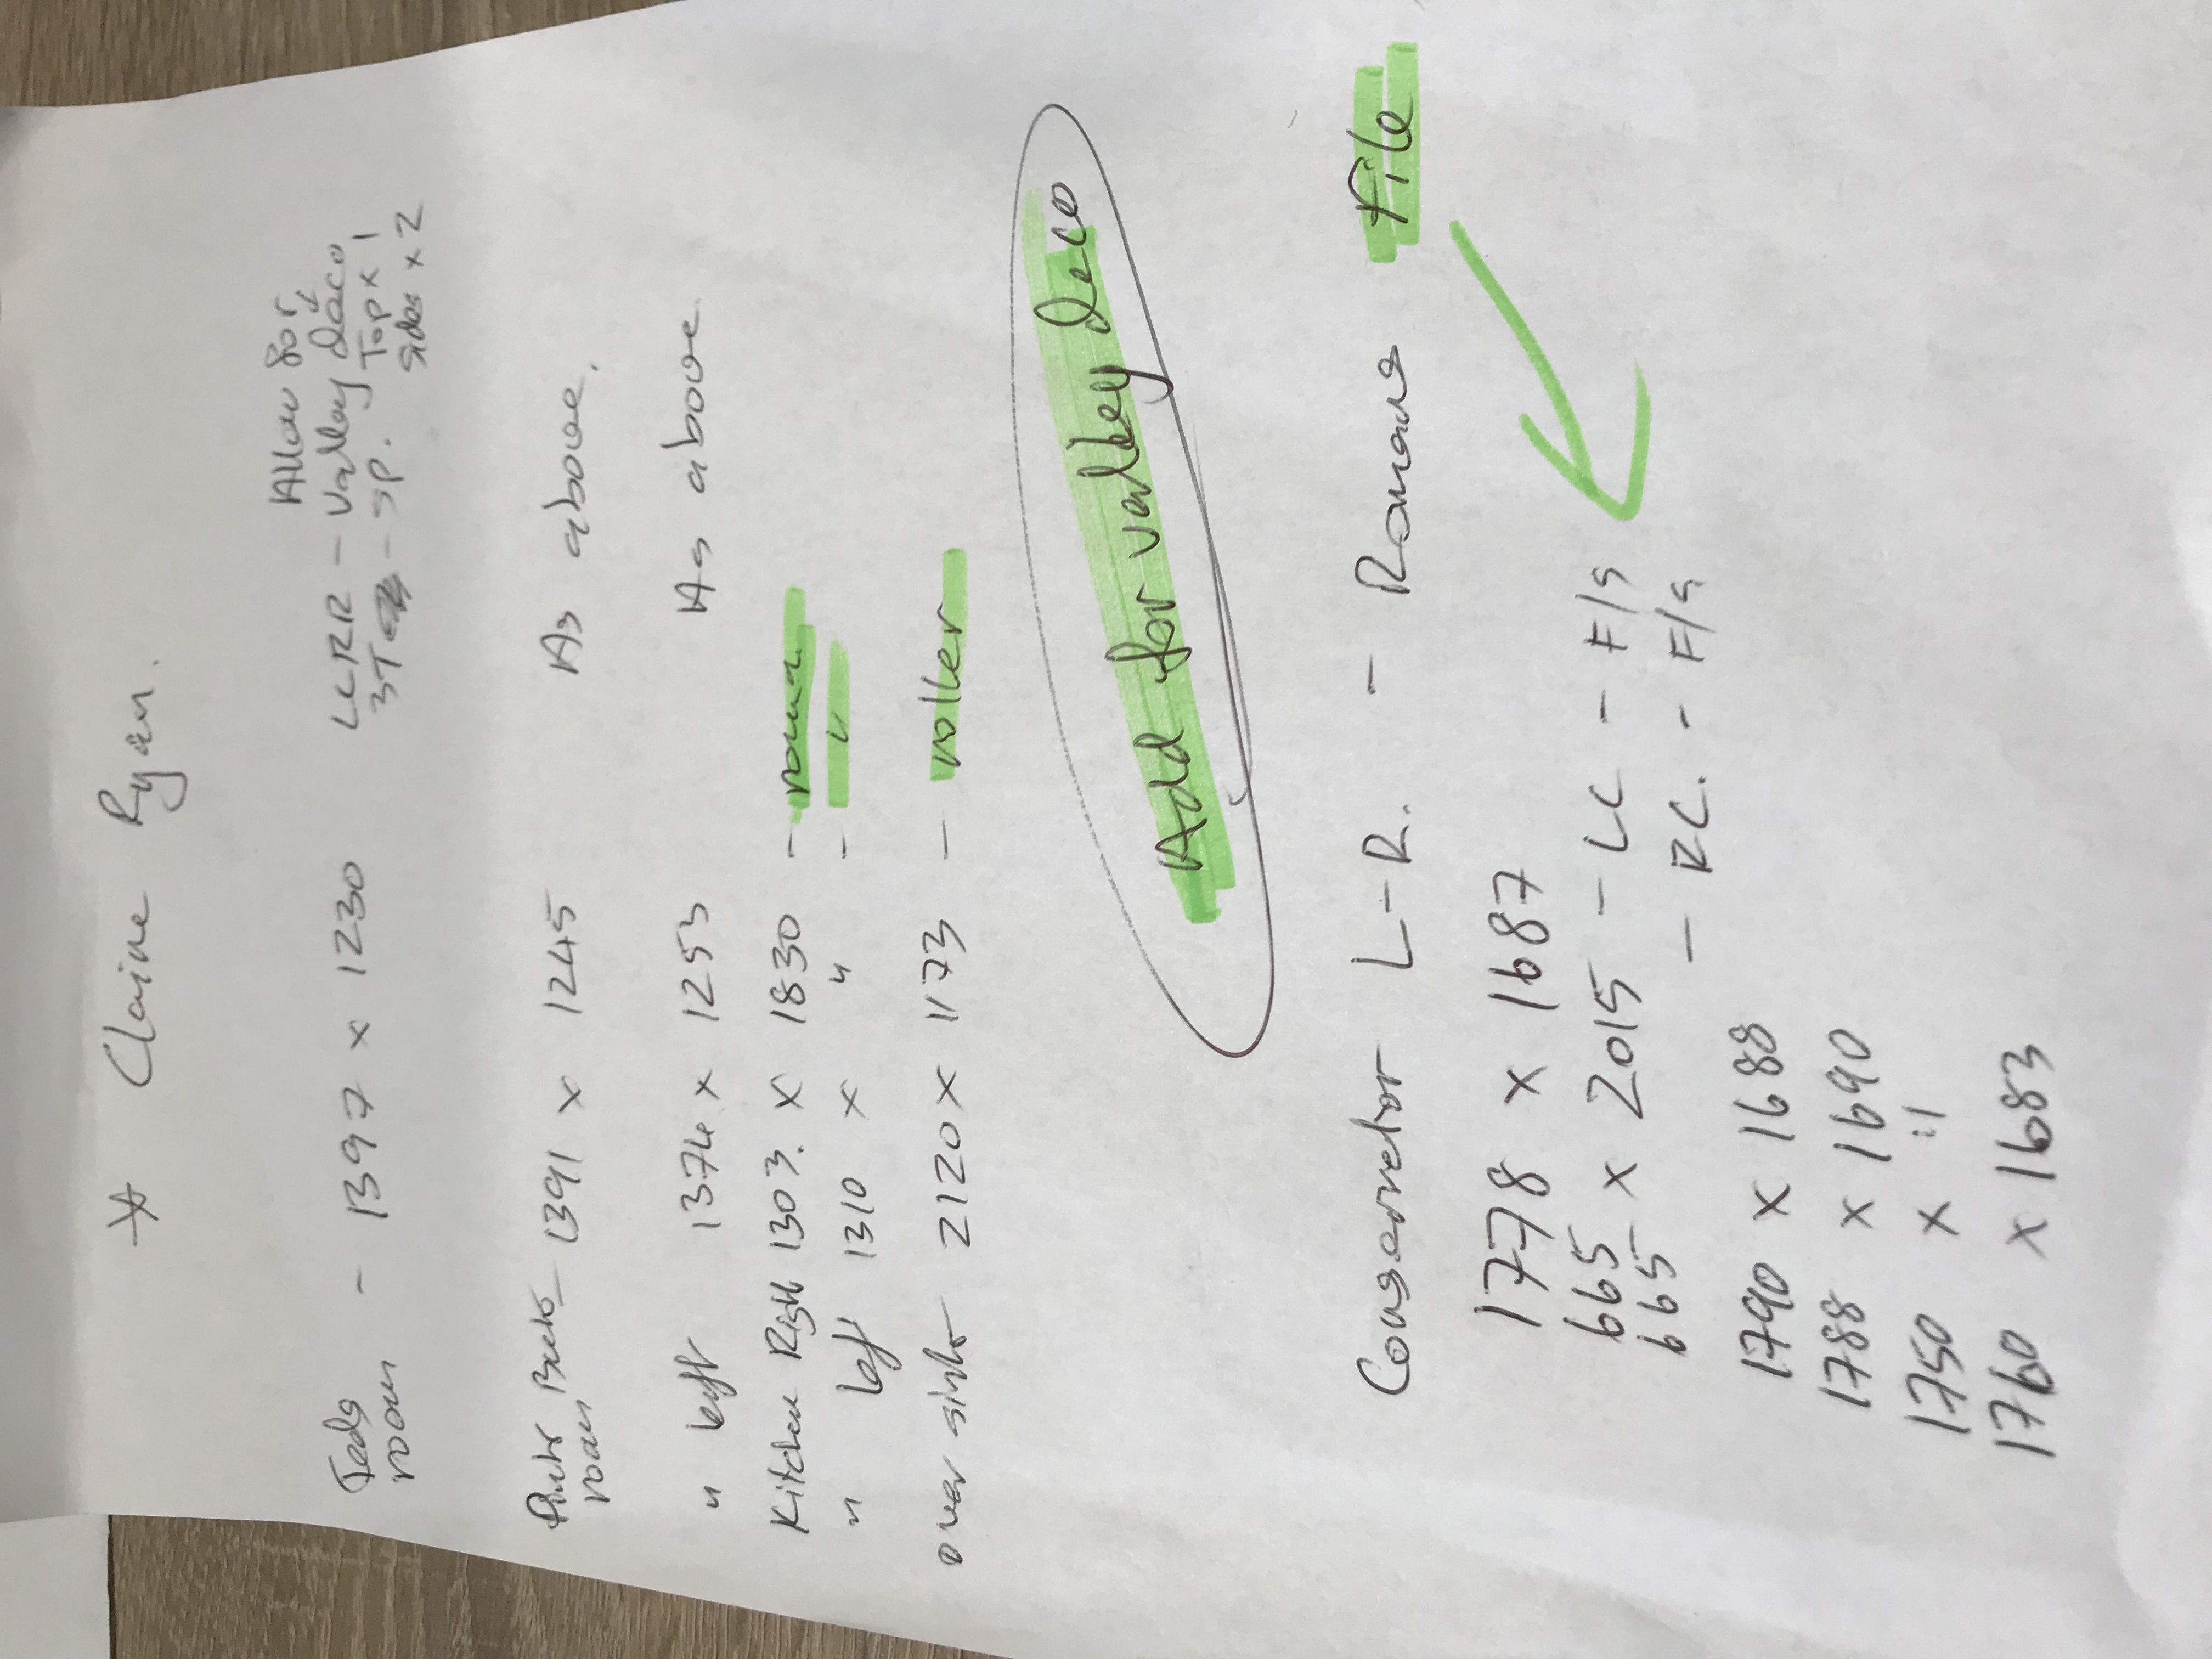 * Claire Ryan.
Allow for
Teds - 1397 x 1230 LCRR - Valley Deco
room 3T - SP. Top x 1
sides x 2
Back - 1391 x 1245 As above.
room
" left 1374 x 1253 As above
Kitchen Right 1303. x 1830 - roman
" left 1310 x " - "
over sink 2120 x 1173 - roller
Add for valley Deco
L-R. - Romans File
1778 x 1687
665 x 2015 - LC - F/s
665 - RC. - F/s
1790 x 1688
1788 x 1690
1750 x "
1760 x 1683